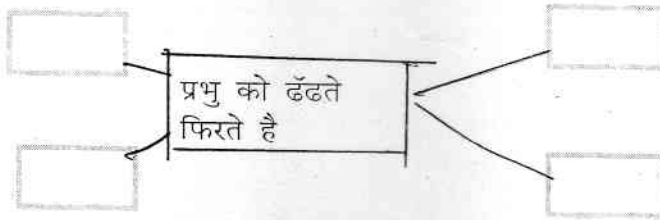 प्रभु को ढॅढते
फिरते है